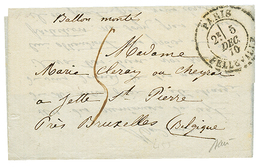 Ballon monté
PARIS
2E 5
DEC.
70
BELLEVILLE
Madame
Marie Cleray ou Cheyrou
à Jette St Pierre
Près Bruxelles (Belgique